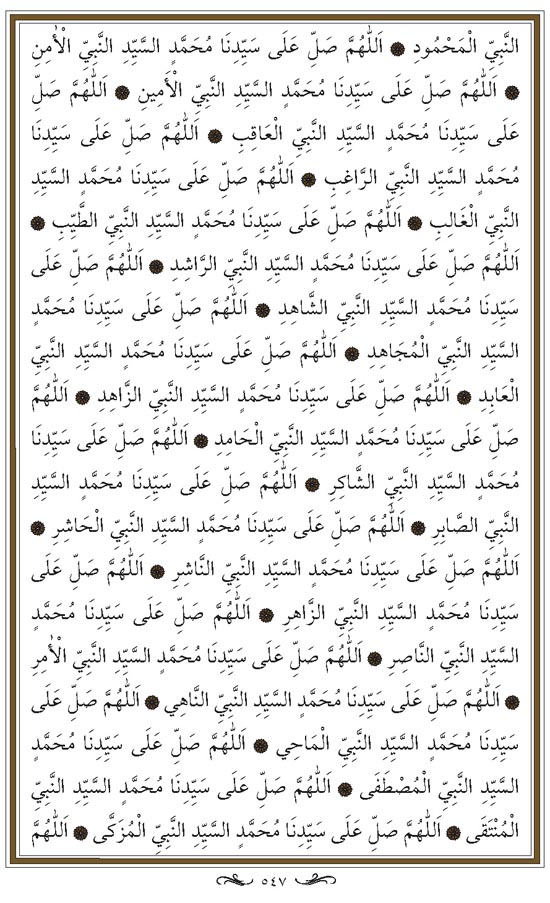 النَّبِيِّ الْمَحْمُودِ ۞ اَللّٰهُمَّ صَلِّ عَلَى سَيِّدِنَا مُحَمَّدٍ السَّيِّدِ النَّبِيِّ الْأٰمِنِ
۞ اَللّٰهُمَّ صَلِّ عَلَى سَيِّدِنَا مُحَمَّدٍ السَّيِّدِ النَّبِيِّ الْأَمِينِ ۞ اَللّٰهُمَّ صَلِّ
عَلَى سَيِّدِنَا مُحَمَّدٍ السَّيِّدِ النَّبِيِّ الْعَاقِبِ ۞ اَللّٰهُمَّ صَلِّ عَلَى سَيِّدِنَا
مُحَمَّدٍ السَّيِّدِ النَّبِيِّ الرَّاغِبِ ۞ اَللّٰهُمَّ صَلِّ عَلَى سَيِّدِنَا مُحَمَّدٍ السَّيِّدِ
النَّبِيِّ الْغَالِبِ ۞ اَللّٰهُمَّ صَلِّ عَلَى سَيِّدِنَا مُحَمَّدٍ السَّيِّدِ النَّبِيِّ الطَّيِّبِ ۞
اَللّٰهُمَّ صَلِّ عَلَى سَيِّدِنَا مُحَمَّدٍ السَّيِّدِ النَّبِيِّ الرَّاشِدِ ۞ اَللّٰهُمَّ صَلِّ عَلَى
سَيِّدِنَا مُحَمَّدٍ السَّيِّدِ النَّبِيِّ الشَّاهِدِ ۞ اَللّٰهُمَّ صَلِّ عَلَى سَيِّدِنَا مُحَمَّدٍ
السَّيِّدِ النَّبِيِّ الْمُجَاهِدِ ۞ اَللّٰهُمَّ صَلِّ عَلَى سَيِّدِنَا مُحَمَّدٍ السَّيِّدِ النَّبِيِّ
الْعَابِدِ ۞ اَللّٰهُمَّ صَلِّ عَلَى سَيِّدِنَا مُحَمَّدٍ السَّيِّدِ النَّبِيِّ الزَّاهِدِ ۞ اَللّٰهُمَّ
صَلِّ عَلَى سَيِّدِنَا مُحَمَّدٍ السَّيِّدِ النَّبِيِّ الْحَامِدِ ۞ اَللّٰهُمَّ صَلِّ عَلَى سَيِّدِنَا
مُحَمَّدٍ السَّيِّدِ النَّبِيِّ الشَّاكِرِ ۞ اَللّٰهُمَّ صَلِّ عَلَى سَيِّدِنَا مُحَمَّدٍ السَّيِّدِ
النَّبِيِّ الصَّابِرِ ۞ اَللّٰهُمَّ صَلِّ عَلَى سَيِّدِنَا مُحَمَّدٍ السَّيِّدِ النَّبِيِّ الْحَاشِرِ ۞
اَللّٰهُمَّ صَلِّ عَلَى سَيِّدِنَا مُحَمَّدٍ السَّيِّدِ النَّبِيِّ النَّاشِرِ ۞ اَللّٰهُمَّ صَلِّ عَلَى
سَيِّدِنَا مُحَمَّدٍ السَّيِّدِ النَّبِيِّ الزَّاهِرِ ۞ اَللّٰهُمَّ صَلِّ عَلَى سَيِّدِنَا مُحَمَّدٍ
السَّيِّدِ النَّبِيِّ النَّاصِرِ ۞ اَللّٰهُمَّ صَلِّ عَلَى سَيِّدِنَا مُحَمَّدٍ السَّيِّدِ النَّبِيِّ الْأٰمِرِ
۞ اَللّٰهُمَّ صَلِّ عَلَى سَيِّدِنَا مُحَمَّدٍ السَّيِّدِ النَّبِيِّ النَّاهِي ۞ اَللّٰهُمَّ صَلِّ عَلَى
سَيِّدِنَا مُحَمَّدٍ السَّيِّدِ النَّبِيِّ الْمَاحِي ۞ اَللّٰهُمَّ صَلِّ عَلَى سَيِّدِنَا مُحَمَّدٍ
السَّيِّدِ النَّبِيِّ الْمُصْطَفَى ۞ اَللّٰهُمَّ صَلِّ عَلَى سَيِّدِنَا مُحَمَّدٍ السَّيِّدِ النَّبِيِّ
الْمُنْتَقَى ۞ اَللّٰهُمَّ صَلِّ عَلَى سَيِّدِنَا مُحَمَّدٍ السَّيِّدِ النَّبِيِّ الْمُزَكَّى ۞ اَللّٰهُمَّ
٥٤٧